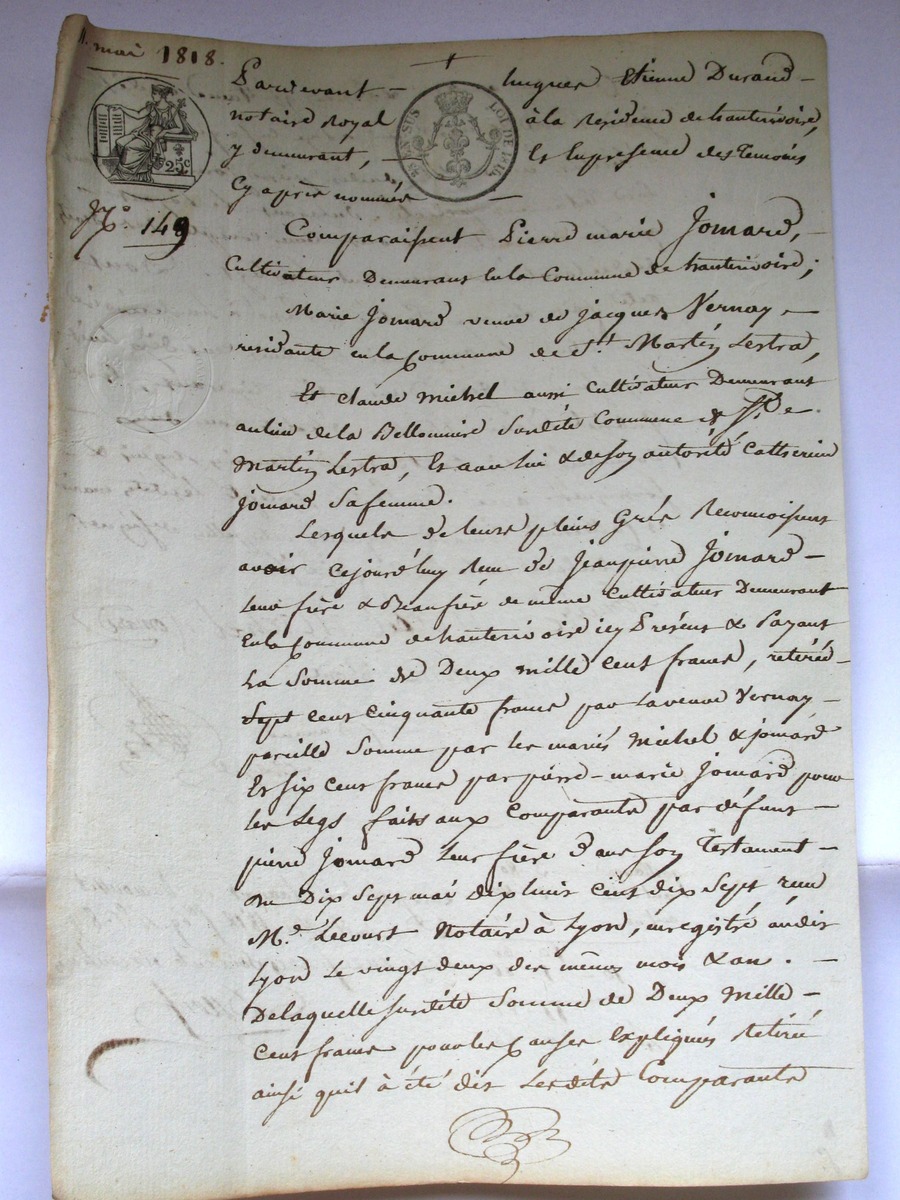 mai 1818.
Pardevant hugues Etienne Durand
notaire Royal à la Residence de hauterivoire,
y demeurant, Et Enpresence des Temoins
Cy après nommés
25c
No. 149
Comparaissent Pierre marie Jomard,
Cultivateur Demeurant En la Commune de hauterivoire;
Marie Jomard veuve de Jacques Vernay
residante en la Commune de St. Martin Lestra,
Et Claude Michel aussi Cultivateur Demeurant
au lieu de la Susdite Commune de St.
Martin Lestra, Et avec lui & de son autorité Catherine
Jomard Sa femme.
Lesquels de leurs pleins Grés Reconnoissent
avoir cejourd'huy Reçu de Jean pierre Jomard
leur frère & Beaufrère de même Cultivateur Demeurant
En la Commune de hauterivoire icy Présent & Payant
La Somme de Deux mille cent francs, retirée
Sept cent cinquante francs par la veuve Vernay
pareille Somme par les mariés Michel & Jomard
Et Six Cent francs par pierre-marie Jomard pour
les Legs faits aux Comparants par défunt
pierre Jomard leur frère dans son Testament
du Dix Sept mai dix huit Cent dix Sept reçu
Me. Lecourt Notaire à Lyon, enregistré audit
Lyon Le vingt deux des mêmes mois & an.
De laquelle susdite Somme de Deux Mille
Cent francs pour les Causes Expliquées Retirée
ainsi qu'il à été dit Lesdits Comparants